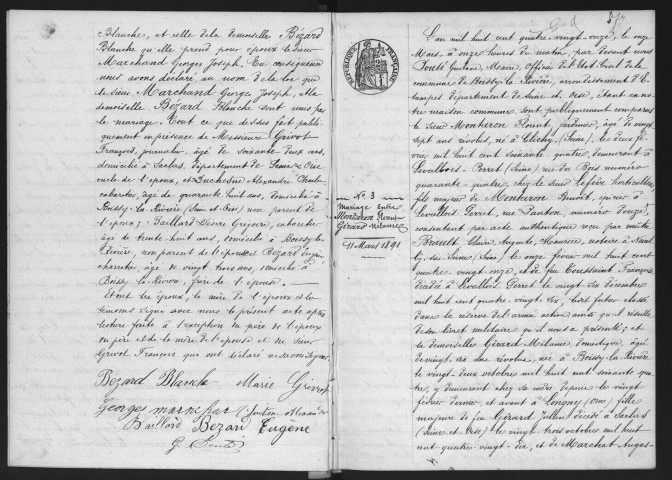 Blanche, et celle de la demoiselle Bezard
Blanche qu'elle prend pour époux le sieur
Marchand Georges Joseph. En conséquence
nous avons déclaré au nom de la loi que
le sieur Marchand Georges Joseph, et la
demoiselle Bézard Blanche sont unis par
le mariage. Tout ce que dessus fait publi-
quement en présence de Messieurs Grivot
François, journalier, âgé de soixante deux ans,
domicilié à Saclas, département de Seine & Oise
oncle de l'époux, et Alexandre Charles
cabaretier, âgé de quarante huit ans, domicilié à
Boissy-la-Rivière (Seine-et-Oise) non parent de
l'époux; Baillard Désiré Grégoire, cabaretier
âgé de trente huit ans, domicilié à Boissy-la-
Rivière, non parent de l'épouse et Bezard Eugène
charretier, âgé de vingt trois ans, domicilié à
Boissy la Rivière, frère de l'épouse.
Et ont les époux, la mère de l'époux et les
témoins signé avec nous le présent acte après
lecture faite à l'exception du père de l'époux
du père et de la mère de l'épouse et du sieur
Grivot François qui ont déclaré ne savoir signer
Bezard Blanche Marie Grivot
Georges marchand
Baillard Bezard Eugène
G Pouté
RÉPUBLIQUE FRANÇAISE
N° 3
Mariage Entre
Montaron Florent
Gérard Mélanie
11 Mars 1891
L'an mil huit cent quatre-vingt-onze, le onze
Mars à onze heures du matin, par devant nous
Pouté Gustave, Maire, Officier de l'Etat Civil de la
commune de Boissy-la-Rivière, arrondissement d'E-
tampes département de Seine et Oise, étant en no-
tre maison commune, sont publiquement comparus
le sieur Montaron Florent, jardinier, âgé de vingt
sept ans révolus, né à Clichy, (Seine), le deux
mil huit cent soixante quatre, demeurant à
Levallois-Perret, (Seine) rue du Bois numéro
quarante-quatre, chez le sieur Lefèvre horticulteur,
fils mineur de Montaron Benoit,
Levallois Perret, rue numéro douze,
consentant par acte authentique reçu par maître
Brault, notaire à Neuil-
ly-sur-Seine, Seine, le onze février mil huit cent
quatre vingt onze, et de feu Toussaint Françoise
décédée à Levallois Perret le vingt six décembre
mil huit cent quatre vingt six, classé
dans la réserve de l'armée active, ainsi qu'il résulte
de son livret militaire qu'il nous a présenté; et
la demoiselle Gérard Mélanie, domestique, âgée
de vingt six ans révolus, née à Boissy-la-Rivière
le vingt-deux octobre mil huit cent soixante qua-
tre, y demeurant chez sa mère depuis le vingt
février dernier, et avant à (Orne) fille
majeure de feu Gérard Jullien décédé à Saclas
(Seine et Oise) le vingt trois octobre mil huit
cent quatre-vingt-dix, et de Marchat Augus-